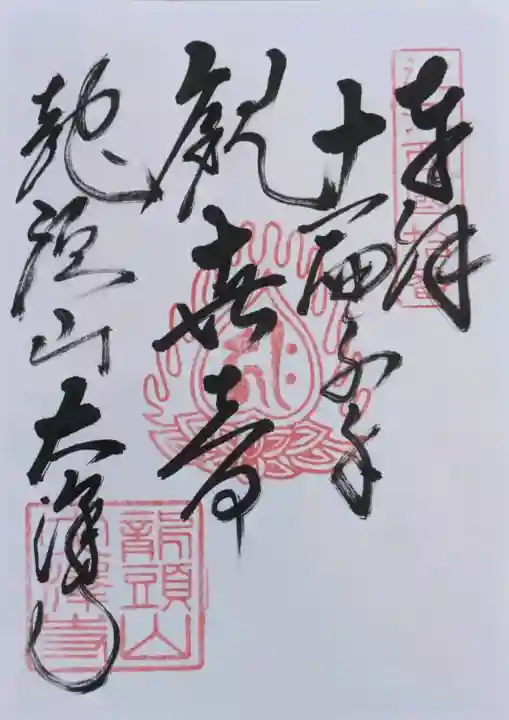 奉拝
十一面千手
観世音
龍頭山大澤寺
龍頭山
大澤寺